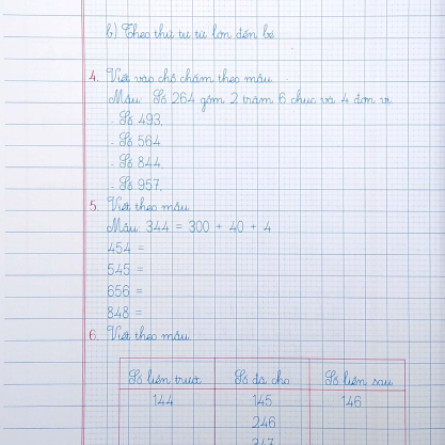 b) Theo thứ tự từ lớn đến bé
4. Viết vào chỗ chấm theo mẫu.
Mẫu: Số 264 gồm 2 trăm 6 chục và 4 đơn vị.
- Số 493
- Số 564
- Số 844
- Số 957
5. Viết theo mẫu
Mẫu 344 = 300 + 40 + 4
454 =
545 =
656 =
848 =
6. Viết theo mẫu
Số liền trước Số đã cho Số liền sau
144 145 146
246
347